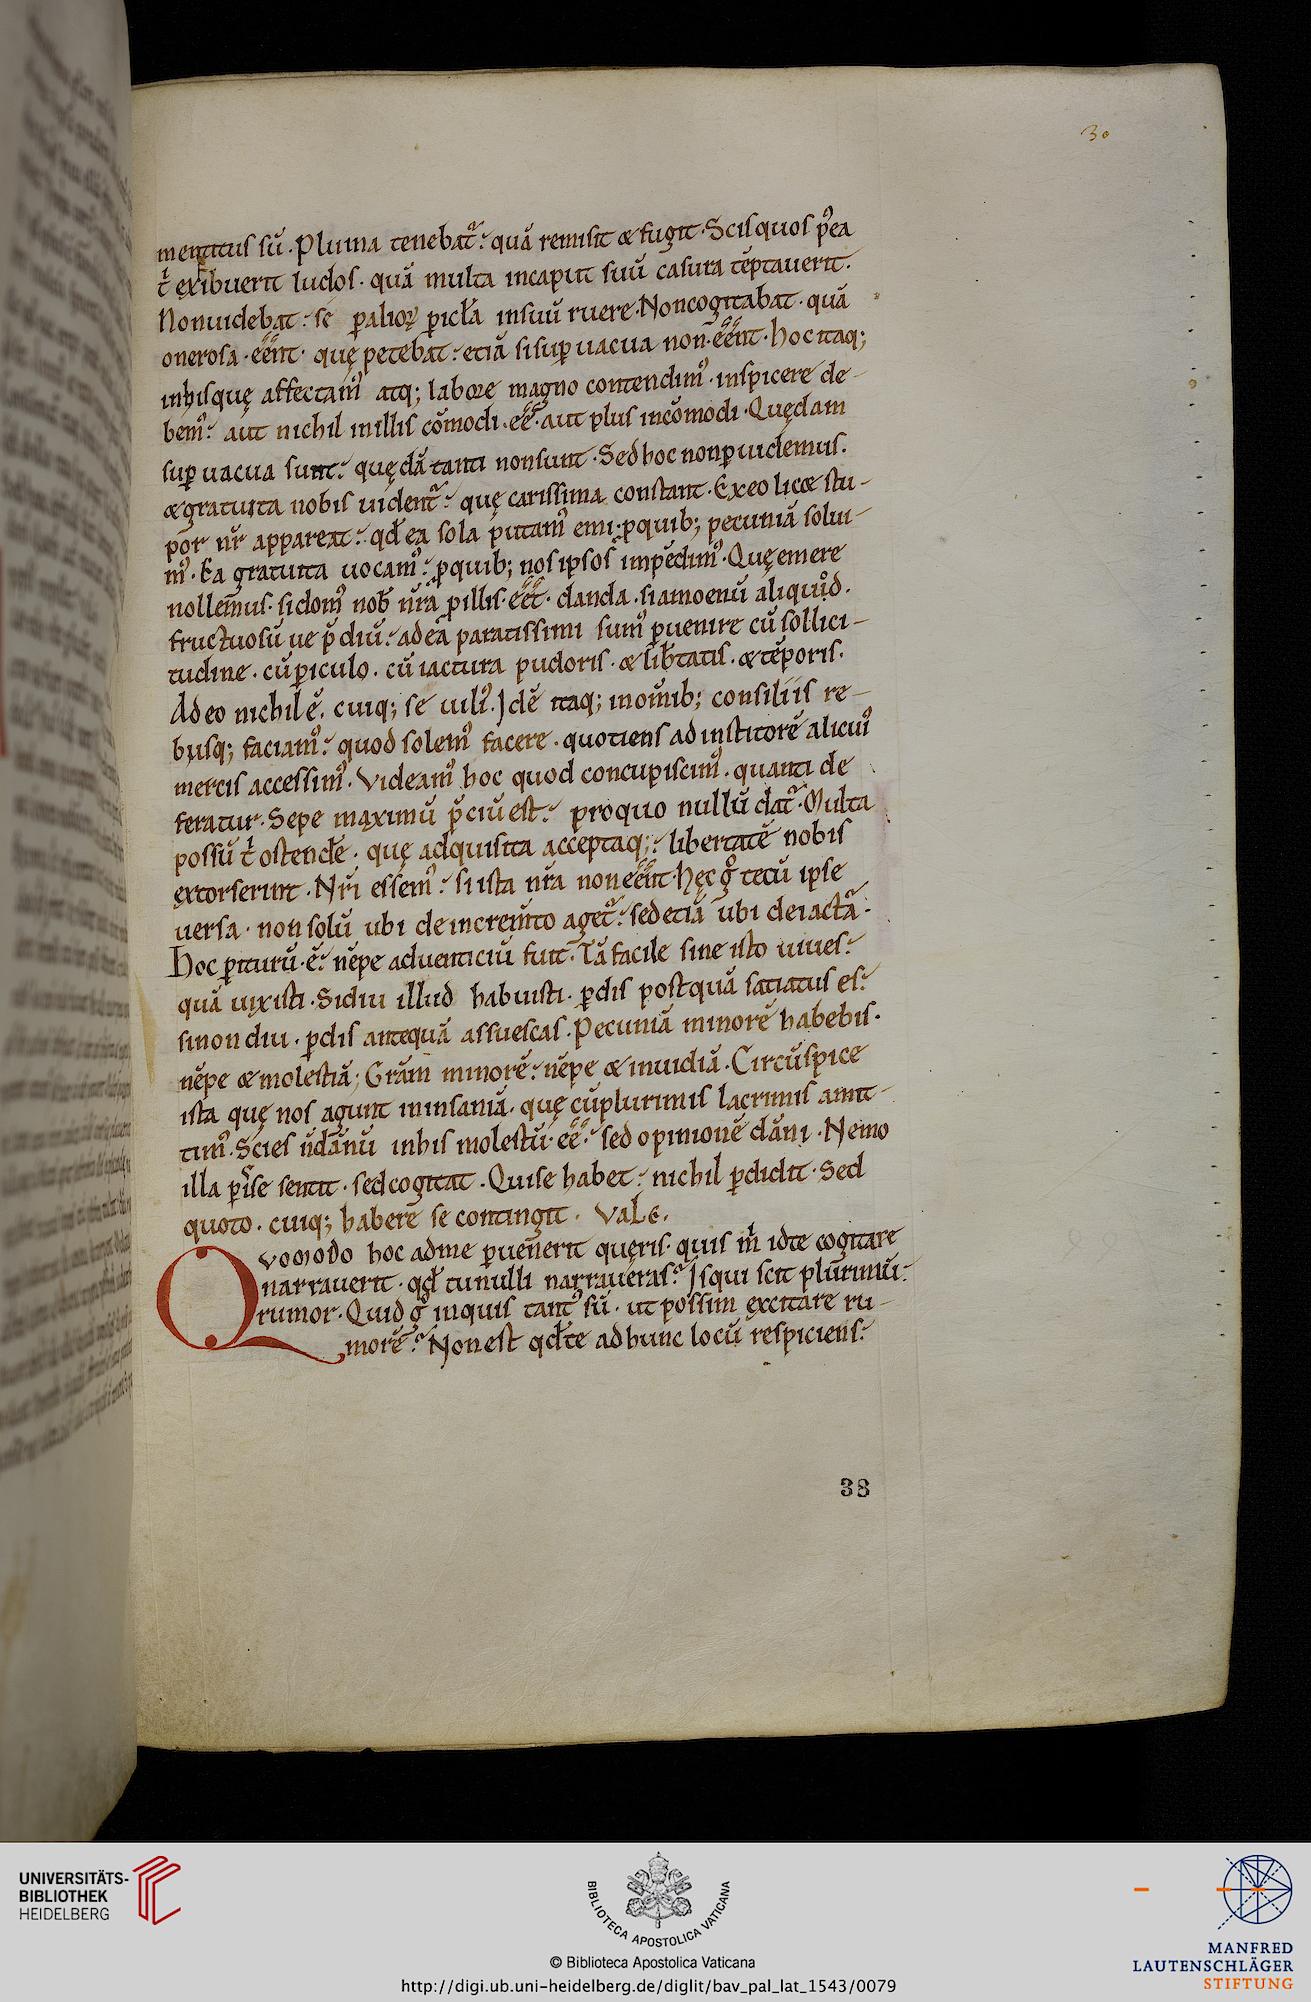 30
mentitus sū. Pluma tenebat᷑. quā remisit & fugit. Scis quos p̱ea
t̄ exibuerit ludos. quā multa incaput suū casura tēptauerit.
Nonuidebat. se p̱alioꝝ p̱icl̄a insuū ruere. Noncogitabat. quā
onerosa. eēnt. quę petebat. etiā sisup̱uacua non. eēnt. hoc itaq;
inhisquę affectamꝰ atq; labore magno contendimꝰ. inspicere de-
bemꝰ. aut nichil inillis cōmodi. eē. aut plus incōmodi. Quędam
sup̱uacua sunt. quędā tanti nonsunt. Sedhoc nonp̱uidemus.
&gratuita nobis uident᷑. quę carissima constant. Exeo licet stu-
por nr̄ appareat. qd̄ ea sola putamꝰ emi. ꝓquib; pecuniā solui-
mꝰ. Ea gratuita uocamꝰ. ꝓquib; nosipsos impēdimꝰ. Quęemere
nollemus. sidomꝰ nob̄ nr̄a ꝓillis. eēt. danda. siamoenū aliquod.
fructuosū ue p̄diū. adea paratissimi sumꝰ puenire cū sollici-
tudine. cūp̱iculo. cū iactura pudoris. & lib̄tatis. &tēporis.
Adeo nichilē. cuiq; se uiliꝰ. Idē itaq; inomīb; consiliis re-
busq; faciamꝰ. quod solemꝰ facere. quotiens ad institorē alicuiꝰ
mercis accessimꝰ. Videamꝰ hoc quod concupiscimꝰ. quanti de
feratur. Sepe maximū p̄ciū est. proquo nullū dat᷑. Multa
possū t̄ ostendere. quę adquisita acceptaq; libertatē nobis
extorserint. Nr̄i essemꝰ. siista nr̄a non eēnt. hęc gͦ tecū ipse
uersa. nonsolū ubi deincremto aget᷑. sedetiā ubi deiactā.
Hoc p̱iturū. ē. nēpe aduenticiū fuit. Tā facile sine isto uiues.
quā uixisti. Sidiu illud habuisti. p̱dis postquā satiatus es.
sinon diu. p̱dis antequā assuescas. Pecuniā minorē habebis.
nēpe &molestiā; Gr̄am minorē. nēpe & inuidiā. Circūspice
ista quę nos agunt ininsaniā. quę cūplurimis lacrimis amit-
timꝰ. Scies n̄dānū inhis molestū. eē. sed opinionē dāni. Nemo
illa p̱isse sentit. sedcogitat. Quise habet. nichil p̱didit. Sed
quoto. cuiq; habere se contingit. VaLe.
QVOMODO hoc adme p̱uenerit queris. quis m̄ idte cogitare
narrauerit. qd̄ tunulli narraueras. Isqui scit plurimū.
rumor. Quid gͦ inquis tantꝰ sū. ut possim excitare ru-
morē. Nonest qd̄te adhunc locū respiciens.
38
UNIVERSITÄTS-
BIBLIOTHEK
HEIDELBERG
BIBLIOTECA APOSTOLICA VATICANA
© Biblioteca Apostolica Vaticana
http://digi.ub.uni-heidelberg.de/diglit/bav_pal_lat_1543/0079
MANFRED
LAUTENSCHLÄGER
STIFTUNG